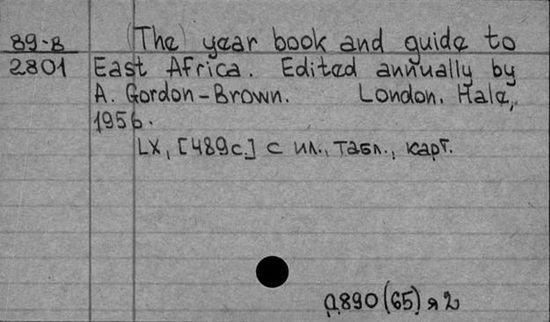 89-8 (The) year book and guide to
2801 East Africa. Edited annually by
A. Gordon-Brown. London. Hale,
1956.
LX, [489с.] с ил., табл., карт.
Д890(65)я2